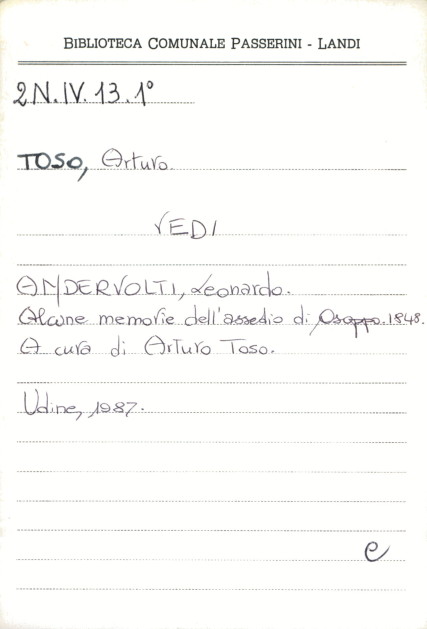 BIBLIOTECA COMUNALE PASSERINI - LANDI
2N.IV.13.1°
TOSO, Arturo.
VEDI
ANDERVOLTI, Leonardo.
Alcune memorie dell'assedio di Osoppo.1848.
A cura di Arturo Toso.
Udine, 1987.
e